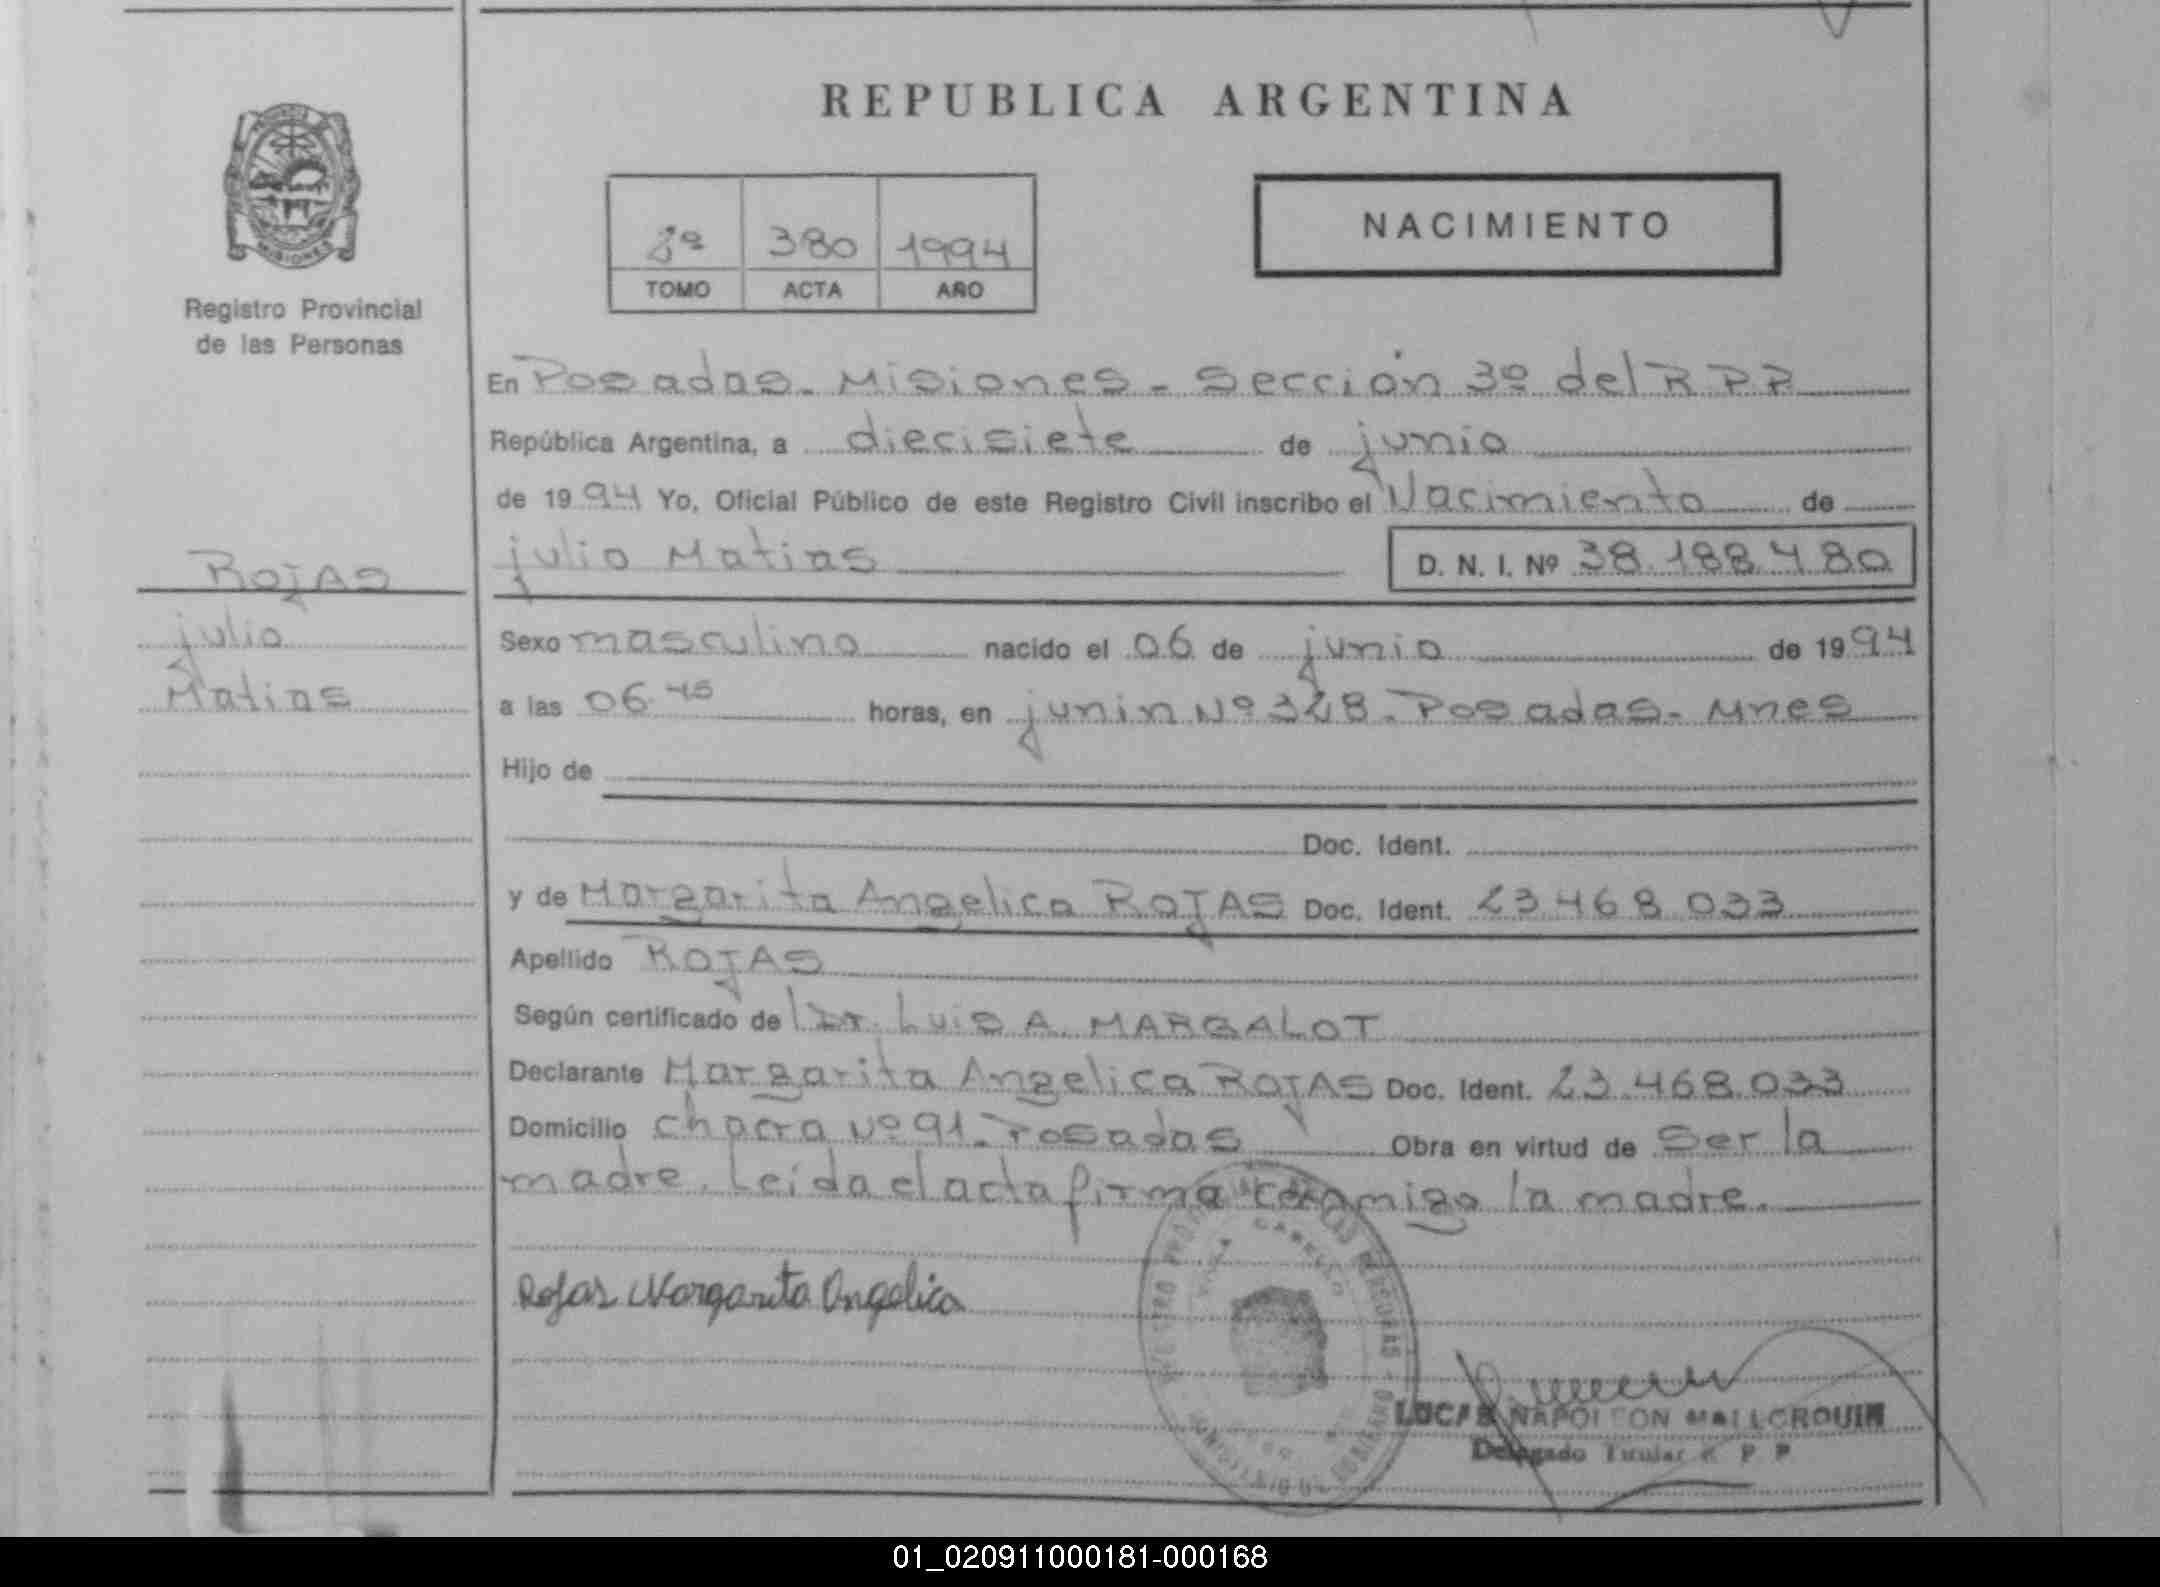 REPUBLICA ARGENTINA
MISIONES
Registro Provincial
de las Personas
380 1994
TOMO ACTA AÑO
NACIMIENTO
En Posadas - Misiones - Sección 3º del R P P
República Argentina, a diecisiete de junio
de 1994 Yo, Oficial Público de este Registro Civil inscribo el Nacimiento de
julio Matias D. N. I. Nº 38.188.480
ROJAS
julio
Matias
Sexo masculino nacido el 06 de junio de 1994
a las 06.45 horas, en junin Nº 328. Posadas - Mnes
Hijo de
Doc. Ident.
y de Margarita Angelica ROJAS Doc. Ident. 23.468.033
Apellido ROJAS
Según certificado de Dr. Luis A. MARGALOT
Declarante Margarita Angelica ROJAS Doc. Ident. 23.468.033
Domicilio chacra Nº 91 - Posadas Obra en virtud de ser la
madre. Leída el acta firma conmigo la madre.
Rojas Margarita Angelica
LUCAS NAPOLEON MALLORQUIN
Delegado Titular R P P
01_020911000181-000168